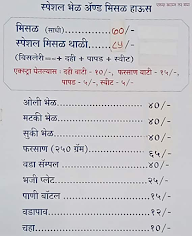 स्पेशल भेळ ॲण्ड मिसळ हाऊस
मिसळ (साधी)..........७०/-
स्पेशल मिसळ थाळी.......८५/-
(बिसलेरी ==+ दही + पापड + स्वीट)
एक्स्ट्रा घेतल्यास : दही वाटी - १०/-, फरसाण वाटी - १५/-,
पापड - ५/-, स्वीट - ५/-
ओली भेळ ........ ४०/-
मटकी भेळ ........ ४०/-
सुकी भेळ ........ ४०/-
फरसाण (२५० ग्रॅम) ........ ६५/-
वडा सॅम्पल ........ ४०/-
भजी प्लेट ........ २५/-
पाणी बॉटल ........ १५/-
वडापाव ........ १२/-
चहा ........ १०/-